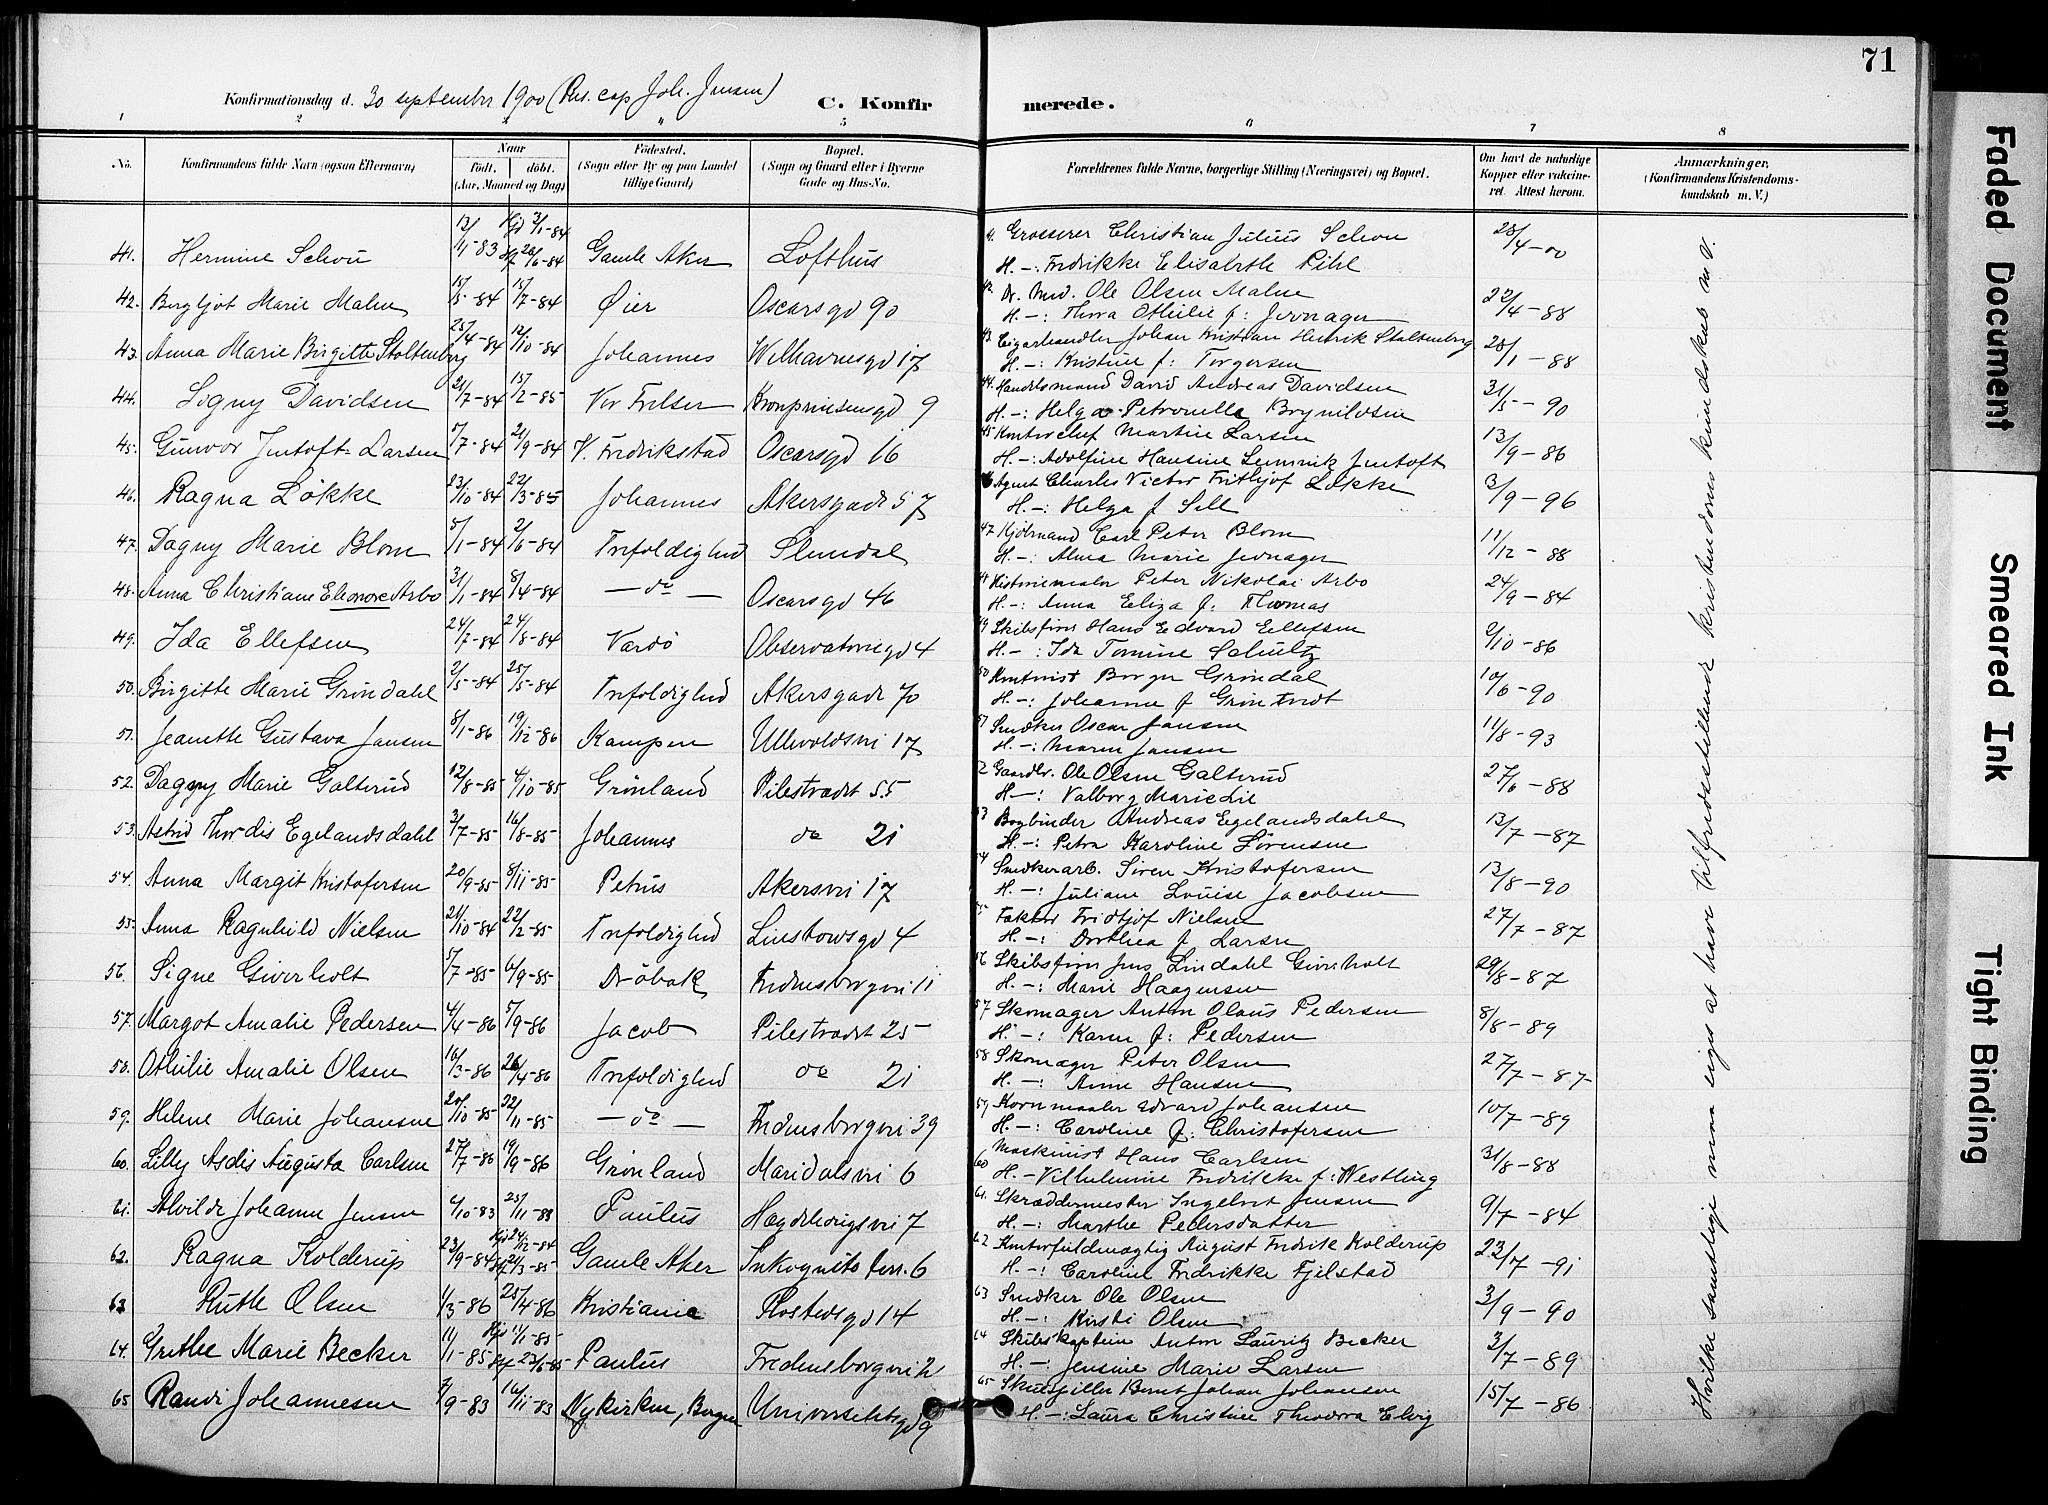 71
Konfirmationsdag d. 30 september 1900 (Res. cap Joh. Jensen) C. Konfir merede.
1 2 3 4 5 6 7 8
No. Konfirmandens fulde Navn (ogsaa Efternavn) Naar født, døbt. (Aar, Maaned og Dag) Fødested. (Sogn eller By og paa Landet tillige Gaard) Bopæl. (Sogn og Gaard eller i Byerne Gade og Hus-No. Forældrenes fulde Navne, borgerlige Stilling (Næringsvei) og Bopæl. Om havt de naturlige Kopper eller vakcineret. Attest herom. Anmærkninger. (Konfirmandens Kristendomskundskab m. V.)
41. Hermine Schou 13/11-83 Hjd 3/1-84 28/6-84 Gamle Aker Lofthus Grosserer Christian Julius Schou 28/4-00
H.-: Fredrikke Elisabeth Pihl
42. Bergljot Marie Malm 15/5-84 15/7-84 Øier Oscarsgd 90 Dr. Med. Ole Olsen Malm 22/4-88
H.-: Thora Othilie f: Jernager
43. Anna Marie Birgitte Stoltenberg 25/4-84 12/10-84 Johannes Welhavnesgd 17 Cigarhandler Johan Kristian Henrik Stoltenberg 28/1-88
H.-: Kristine f: Torgersen
44. Sogny Davidsen 21/7-84 15/2-85 Vor Frelser Kronprinsensgd 9 Handelsmand David Andreas Davidsen 31/5-90
H.-: Helga Petronelle Brynildsen
45. Gunvor Jentoft-Larsen 5/7-84 21/9-84 V. Fredrikstad Oscarsgd 16 Kontorchef Martin Larsen 13/9-86
H.-: Adolfine Hansine Jentoft
46. Ragna Løkke 23/10-84 22/3-85 Johannes Akersgade 57 Agent Charles Victor Frithjof Løkke 3/9-96
H.-: Helga f Sell
47. Dagny Marie Blom 5/1-84 2/6-84 Trefoldighed Slemdal Carl Peter Blom 11/12-88
H.-: Alma Marie Jernager
48. Anna Christiane Eleonore Arbo 31/1-84 8/4-84 - do - Oscarsgd 46 Historiemaler Peter Nikolai Arbo 24/9-84
H.-: Anna Eliza f: Thomas
49. Ida Ellefsen 24/7-84 24/8-84 Vardö Observatoriegd 4 Skibsfører Hans Edvard Ellefsen 2/10-86
H.-: Ida Tomine Schultz
50. Birgitte Marie Gröndahl 2/5-84 25/5-84 Trefoldighed Akersgade 70 Kontorist Borger Gröndal 10/6-90
H.-: Johanne f Grøntvedt
51. Jeanette Gustava Jansen 8/1-86 19/12-86 Kampen Ullevoldsvei 17 Snedker Oscar Jansen 11/8-93
H.-: Maren Jansen
52. Dagny Marie Galterud 12/8-85 4/10-85 Grönland Pilestrædet 55 Gaardbr. Ole Olsen Galterud 27/6-88
H.-: Valborg Marie Lie
53. Astrid Thordis Egelandsdahl 2/7-85 16/8-85 Johannes do 21 Bogbinder Andreas Egelandsdahl 13/7-87
H.-: Petra Karoline Sörensen
54. Anna Margit Kristofersen 20/9-85 8/11-85 Petrus Akersvei 17 Snedkerarb. Sören Kristofersen 13/8-90
H.-: Juliane Louise Jacobsen
55. Anna Ragnhild Nielsen 21/10-84 22/2-85 Trefoldighed Linstowsgd 4 Faktor Fridtjof Nielsen 27/7-87
H.-: Dorthea f Larsen
56. Signe Giverholt 5/7-85 6/9-85 Dröbak Fredensborgvei 11 Skibsfører Jens Lindahl Giverholt 29/8-87
H.-: Marie Haagensen
57. Margot Amalie Pedersen 4/4-86 5/9-86 Jacob Pilestrædet 25 Skomager Anton Olaus Pedersen 8/8-89
H.-: Karen f: Pedersen
58. Othilie Amalie Olsen 16/3-86 26/4-86 Trefoldighed do 21 Skomager Peter Olsen 27/7-87
H.-: Anne Hansen
59. Helene Marie Johansen 20/10-85 22/11-85 - do - Fredensborgvei 39 Kornmaaler Edvard Johansen 10/7-89
H.-: Caroline f: Christofersen
60. Lilly Asdis Augusta Carlsen 27/7-86 19/9-86 Grönland Maridalsvei 6 Maskinist Hans Carlsen 31/8-88
H.- Vilhelmine Fredrikke f: Westling
61. Alvilde Johanne Jensen 6/10-83 25/11-83 Paulus Hægdehaugsvei 7 Skræddermester Ingebret Jensen 9/7-84
H.-: Marthe Pedersdatter
62. Ragna Kolderup 23/9-84 Hjd 24/12-84 21/3-85 Gamle Aker Inkognito terr. 6 Kontorfuldmægtig August Fredrik Kolderup 23/7-91
H.-: Caroline Fredrikke Fjelstad
63. Ruth Olsen 1/3-86 25/4-86 Kristiania Rostedsgd 14 Snedker Ole Olsen 3/9-90
H.-: Kirsti Olsen
64. Grethe Marie Becker 11/1-85 Hjd 11/1-85 23/6-85 Paulus Fredensborgvei 21 Skibskaptein Anton Lauritz Becker 3/7-89
H.-: Jensine Marie Larsen
65 Randi Johannesen 7/9-83 16/11-83 Nykirken, Bergen Universitetsgd 9 Skuespiller Bernt Johan Johannesen 15/7-86
H.-: Laura Christine Theodora Elvig
Hvilke samtlige maa siges at have tilfredsstillende kristendoms kundskab m. v.
Faded Document
Smeared Ink
Tight Binding